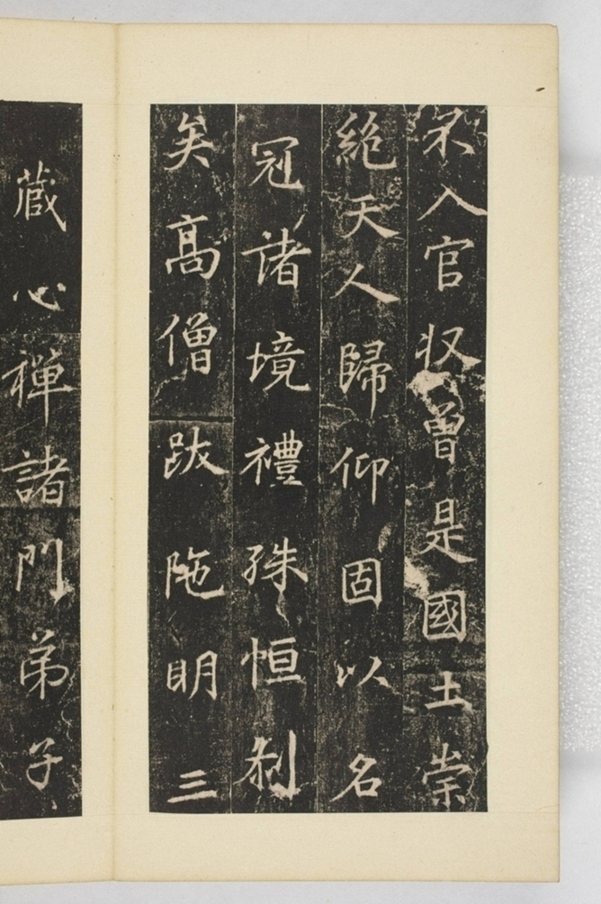 不入官収曾是國土崇
絕天人歸仰固以名
冠諸境禮殊恒剎
矣高僧跋陁明三
藏心禪諸門弟子